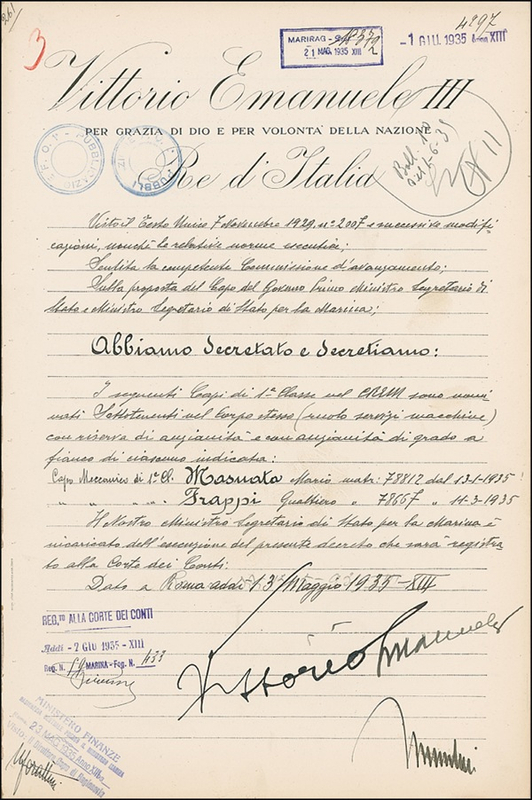 261
3
MARIRAG -
21 MAG. 1935 XIII
4297
-1 GIU. 1935 Anno XIII
Vittorio Emanuele III
PER GRAZIA DI DIO E PER VOLONTÀ DELLA NAZIONE
Re d'Italia
Boll. 10
del 1-6-35
11
Visto il Testo Unico 7 Novembre 1929, n° 2007 e successive modifi
cazioni, nonchè le relative norme esecutive;
Sentita la competente Commissione d'avanzamento;
Sulla proposta del Capo del Governo Primo Ministro Segretario di
Stato e Ministro Segretario di Stato per la Marina;
Abbiamo Decretato e Decretiamo:
I seguenti Capi di 1ª Classe nel C.R.E.M. sono nomi
nati Sottotenenti nel Corpo stesso (ruolo servizi macchine)
con riserva di anzianità e con anzianità di grado a
fianco di ciascuno indicata:
Capo Meccanico di 1ª Cl. Masnata Mario matr: 73812 dal 13-1-1935
" " " " Frappi Gualtiero " 78667 " 11-3-1935
Il Nostro Ministro Segretario di Stato per la Marina è
incaricato dell'esecuzione del presente decreto che sarà registra
to alla Corte dei Conti:
Dato a Roma addì 13 Maggio 1935-XIII
REG.TO ALLA CORTE DEI CONTI
Addì - 2 GIU 1935 - XIII
Reg. N. MARINA - Fog. N. 433
Vittorio Emanuele
Mussolini
MINISTERO FINANZE
23 MAG. 1935 Anno XIII